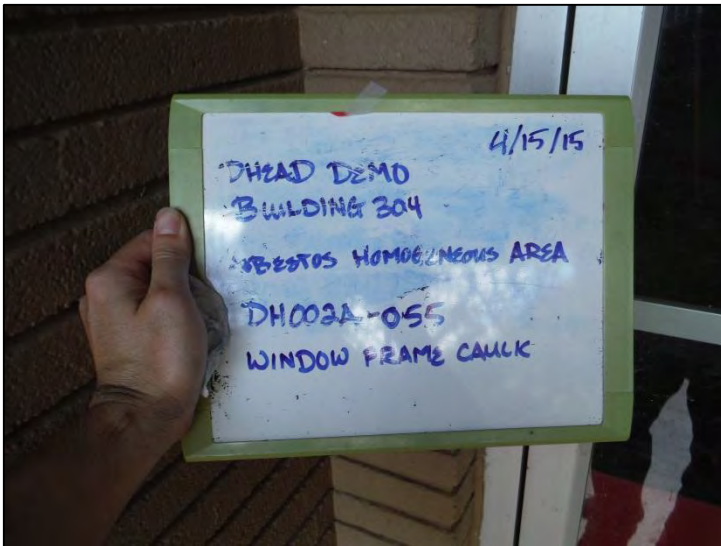 4/15/15
DHEAD DEMO
BUILDING 304
ASBESTOS HOMOGENEOUS AREA
DH002A-055
WINDOW FRAME CAULK